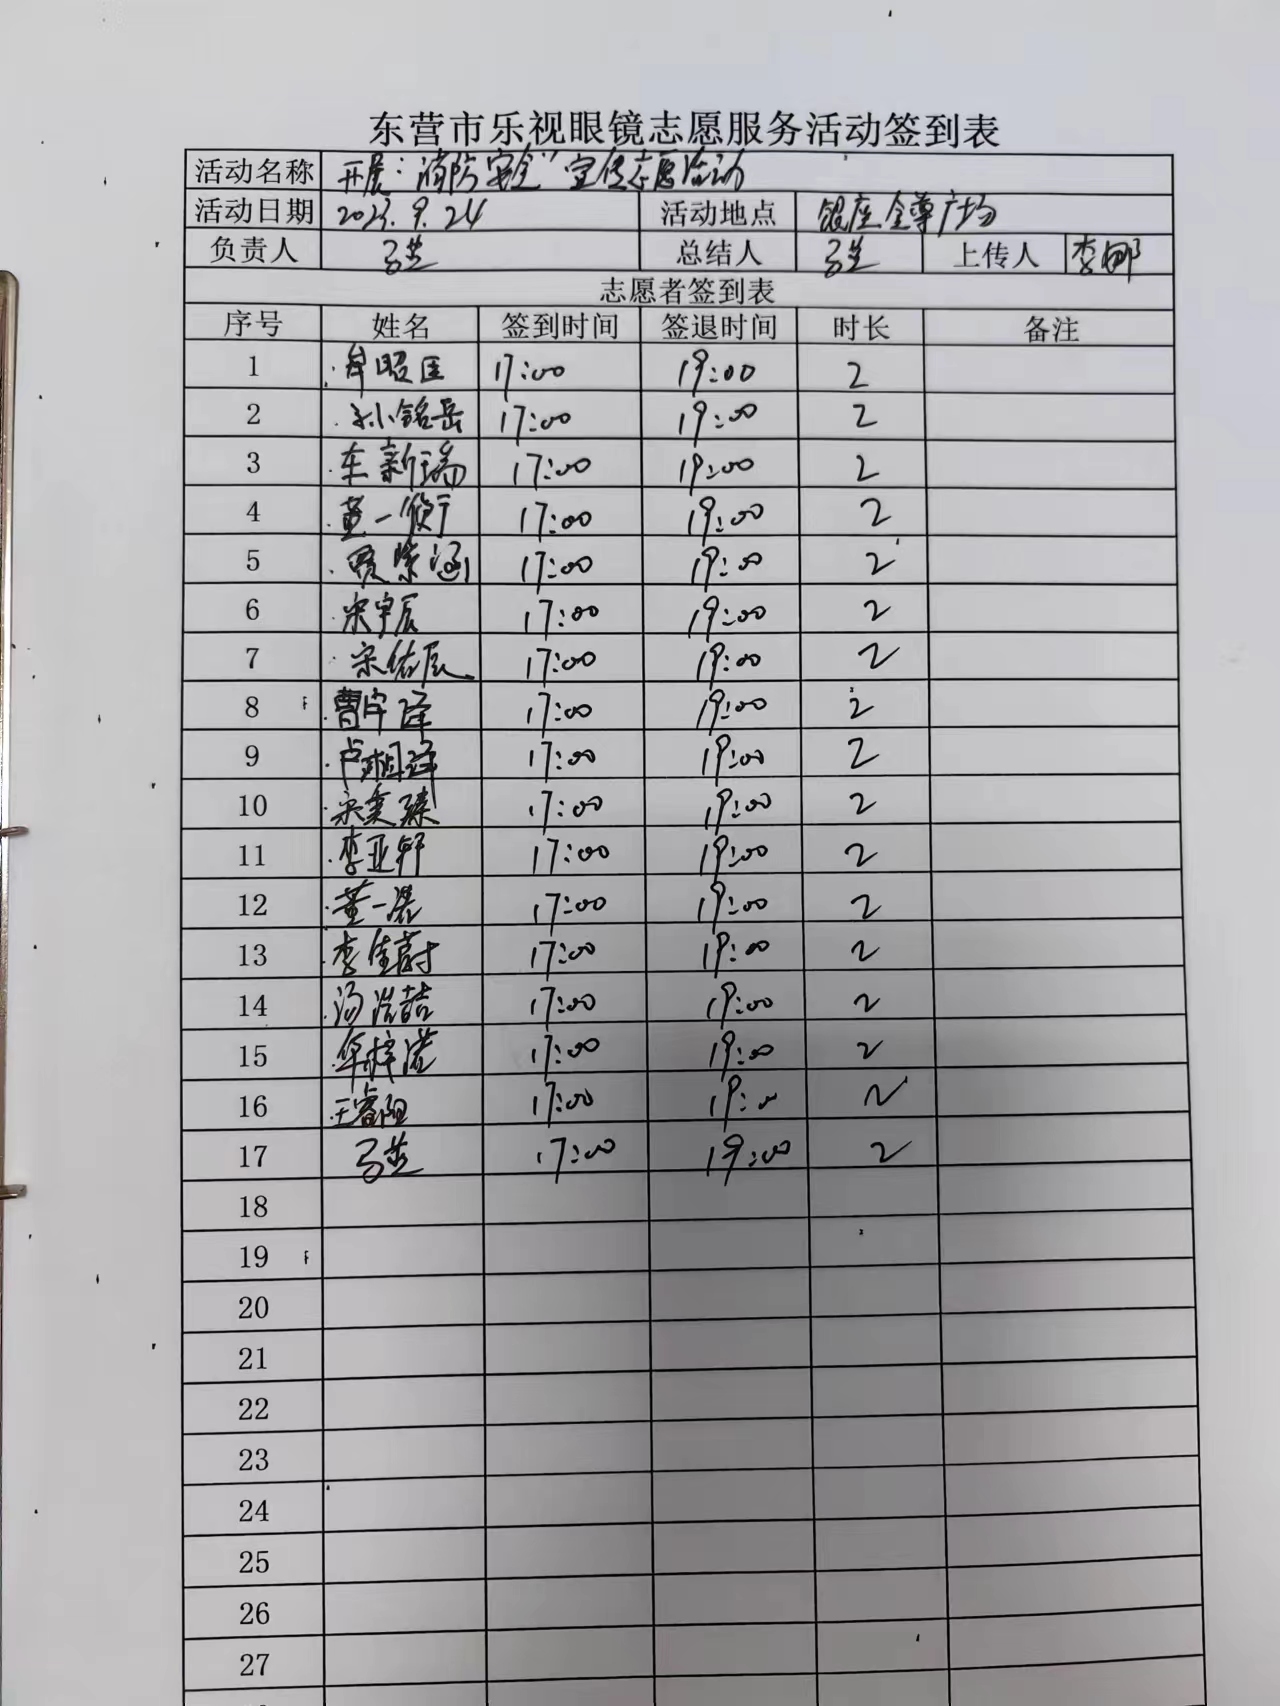 东营市乐视眼镜志愿服务活动签到表
活动名称 开展:"消防安全"宣传志愿活动
活动日期 2023.9.24 活动地点 银座金尊广场
负责人 马芝 总结人 马芝 上传人 李娜
志愿者签到表
序号 姓名 签到时间 签退时间 时长 备注
1 牟昭匡 17:00 19:00 2
2 孙铭岳 17:00 19:00 2
3 车新瑞 17:00 19:00 2
4 董一衡 17:00 19:00 2
5 贾紫涵 17:00 19:00 2
6 宋宇辰 17:00 19:00 2
7 宋佑辰 17:00 19:00 2
8 曹宇泽 17:00 19:00 2
9 卢湘泽 17:00 19:00 2
10 宋奕臻 17:00 19:00 2
11 李亚轩 17:00 19:00 2
12 董一诺 17:00 19:00 2
13 李佳蔚 17:00 19:00 2
14 汤浩喆 17:00 19:00 2
15 17:00 19:00 2
16 王睿阳 17:00 19:00 2
17 马芝 17:00 19:00 2
18
19
20
21
22
23
24
25
26
27